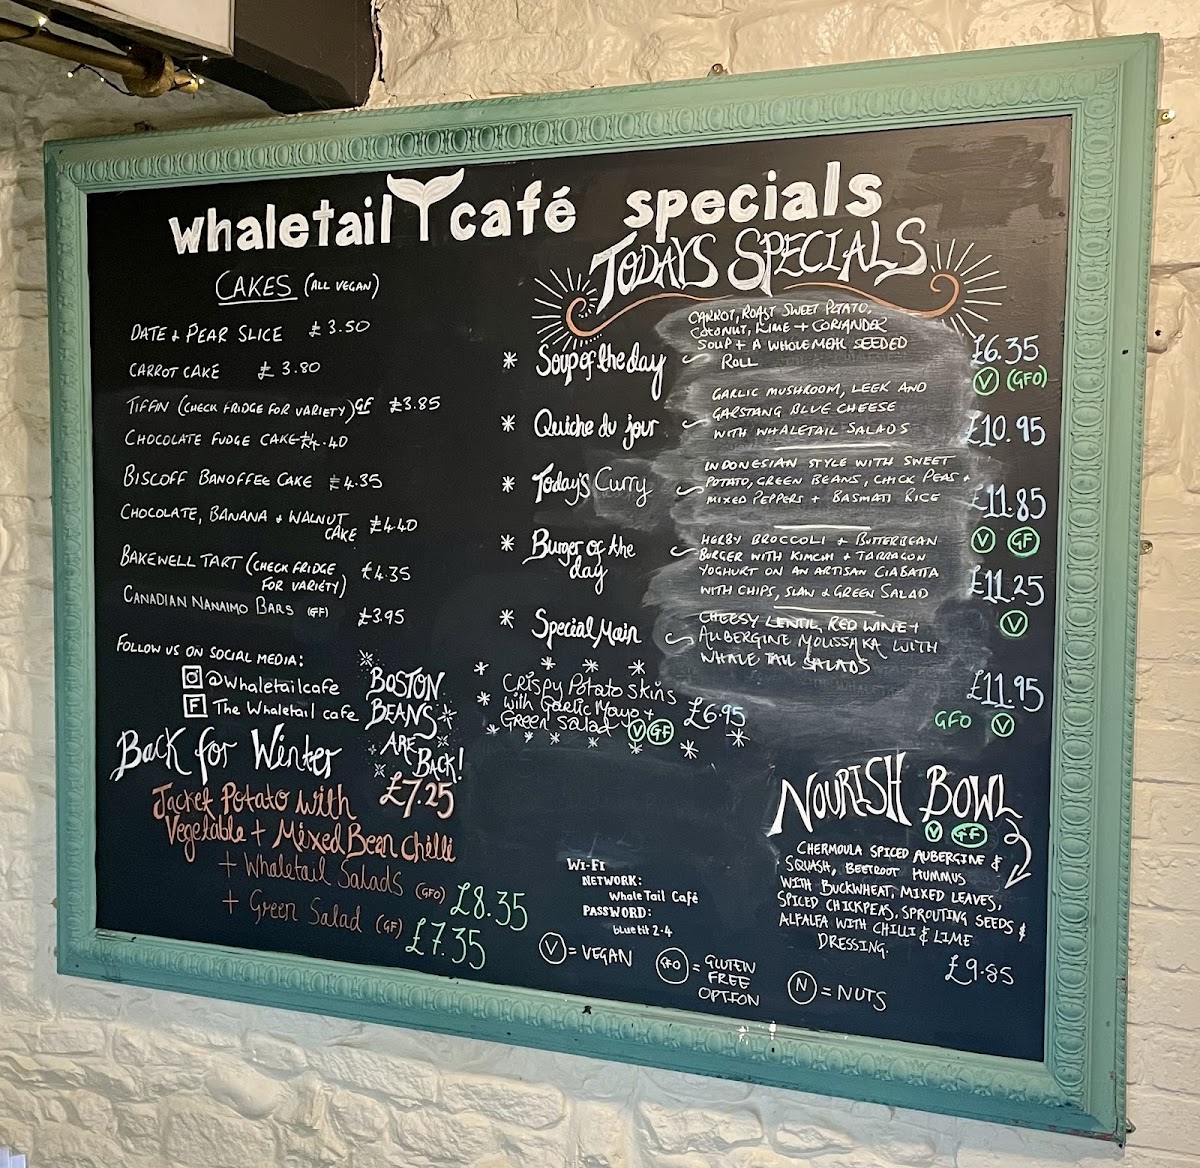 whaletail café specials
CAKES (ALL VEGAN)
DATE + PEAR SLICE £3.50
CARROT CAKE £3.80
TIFFIN (CHECK FRIDGE FOR VARIETY) GF £3.85
CHOCOLATE FUDGE CAKE £4.40
BISCOFF BANOFFEE CAKE £4.35
CHOCOLATE, BANANA + WALNUT
CAKE £4.40
BAKEWELL TART (CHECK FRIDGE
FOR VARIETY) £4.35
CANADIAN NANAIMO BARS (GF) £3.95
FOLLOW US ON SOCIAL MEDIA:
@Whaletailcafe
F The Whaletail cafe
BOSTON
BEANS
ARE
BACK!
£7.25
Back for Winter
Jacket Potato with
Vegetable + Mixed Bean Chilli
+ Whaletail Salads (GFO) £8.35
+ Green Salad (GF) £7.35
TODAYS SPECIALS
* Soup of the day
CARROT, ROAST SWEET POTATO,
COCONUT, LIME + CORIANDER
SOUP + A WHOLEMEAL SEEDED
ROLL
£6.35
V (GFO)
* Quiche du jour
GARLIC MUSHROOM, LEEK AND
GARSTANG BLUE CHEESE
WITH WHALETAIL SALADS
£10.95
* Today's Curry
INDONESIAN STYLE WITH SWEET
POTATO, GREEN BEANS, CHICK PEAS +
MIXED PEPPERS + BASMATI RICE
£11.85
V GF
* Burger of the
day
HERBY BROCCOLI + BUTTERBEAN
BURGER WITH KIMCHI + TARRAGON
YOGHURT ON AN ARTISAN CIABATTA
WITH CHIPS, SLAW & GREEN SALAD
£11.25
V
* Special Main
CHEESY LENTIL, RED WINE +
AUBERGINE MOUSSAKA WITH
WHALE TAIL SALADS
£11.95
GFO V
Crispy Potato Skins
with Garlic Mayo +
Green Salad V GF
£6.95
NOURISH BOWL
V GF
CHERMOULA SPICED AUBERGINE &
SQUASH, BEETROOT HUMMUS
WITH BUCKWHEAT, MIXED LEAVES,
SPICED CHICKPEAS, SPROUTING SEEDS &
ALFALFA WITH CHILLI & LIME
DRESSING.
£9.85
WI-FI
NETWORK:
Whale Tail Café
PASSWORD:
bluetit 2.4
V = VEGAN
GFO = GLUTEN
FREE
OPTION
N = NUTS